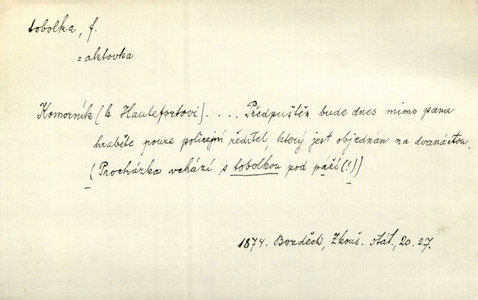 tobolka, f.
= aktovka
Komorník (k Hautefortovi) . . . . Předpuštěn bude dnes mimo pana
hraběte pouze policejní ředitel, který jest objednán na dvanáctou.
(Procházka vchází s tobolkou pod paží (!))
1874. Bozděch, Zkouš. stát. 20. 27.